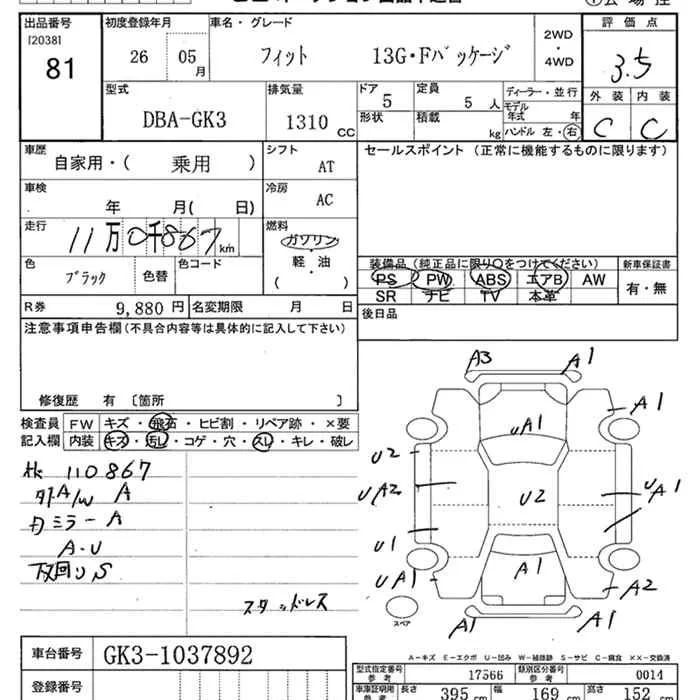 出品番号 初度登録年月 車名・グレード 2WD・4WD 評価点
[2038]
81 26 05月 フィット 13G・Fパッケージ 3.5
外装 内装
C C
型式 排気量 ドア 定員 ディーラー・並行
DBA-GK3 1310cc 5 5人 モデル年式 年
形状 積載 kg ハンドル 左・右
車歴 シフト セールスポイント (正常に機能するものに限ります)
自家用・( 乗用 ) AT
車検 冷房
年 月( 日) AC
走行 燃料
11万0千867km ガソリン・軽・油
( )
色 色替 色コード
ブラック
装備品 (純正品に限り○をつけてください) 新車保証書
PS PW ABS エアB AW 有・無
SR ナビ TV 本革
R券 9,880円 名変期限 月 日
後日品
注意事項申告欄(不具合内容等は具体的に記入して下さい)
修復歴 有 〔箇所 〕
検査員 FW キズ・飛石・ヒビ割・リペア跡・×要
記入欄 内装 キズ・汚レ・コゲ・穴・スレ・キレ・破レ
110867
A/W A
ミラーA
A・U
下回りS
スタッドレス
A3 A1
A1
UA1
U2
UA2
U2
UA1
U1
UA1
A1
A2
A1 A1
スペア
A-キズ E-エクボ U-凹み W-補修跡 S-サビ C-腐食 ××-交換済
車台番号 GK3-1037892
型式指定番号 参考 17566 類別区分番号 参考 0014
登録番号
車庫証明用 参考 長さ 395cm 幅 169cm 高さ 152cm